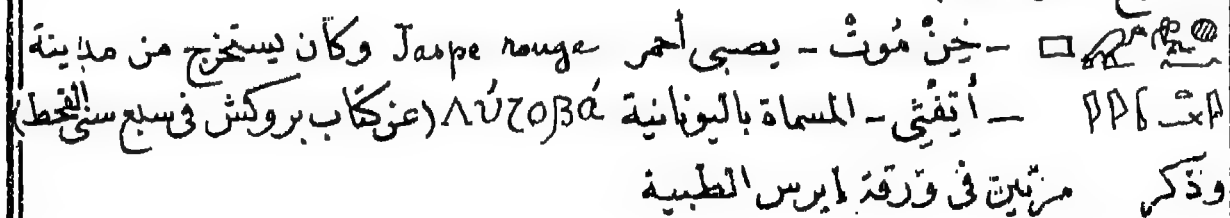 - خِنْ مُوتْ - يصبى أحمر Jaspe rouge وكان يستخرج من مدينة
- أَتِفْتِى - المسماة باليونانية (عن كتاب بروكش فى سبع سنى القحط)
وذكر مرتين فى ورقة ابرس الطبية